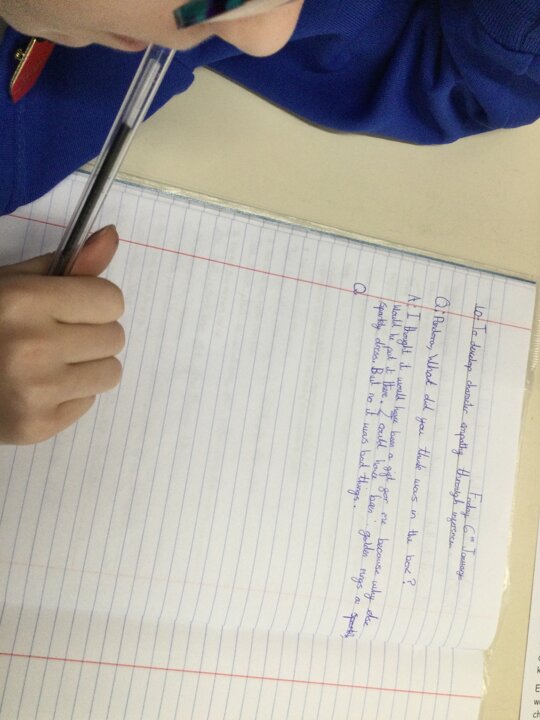 Friday 6th January
LO: To develop character empathy through
Q: Pandora, What did you think was in the box?
A: I thought it would have been a gift for me because why else
would he put it there. It could have been golden rings a sparkly
sparkly dress. But no it was bad things.
Q